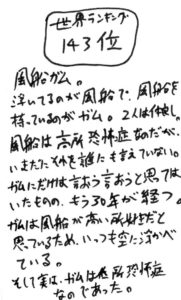 世界ランキング
143位
風船ガム。
浮いてるのが風船で、風船を
持っているのがガム。2人は仲良し。
風船は高所恐怖症なのだが、
いまだにそれを誰にも言えていない。
ガムにだけは言おう言おうと思っては
いたものの、もう30年が経つ。
ガムは風船が高い所好きだと
思っているため、いっつも空に浮かべ
ている。
そして実は、ガムは低所恐怖症
なのであった。